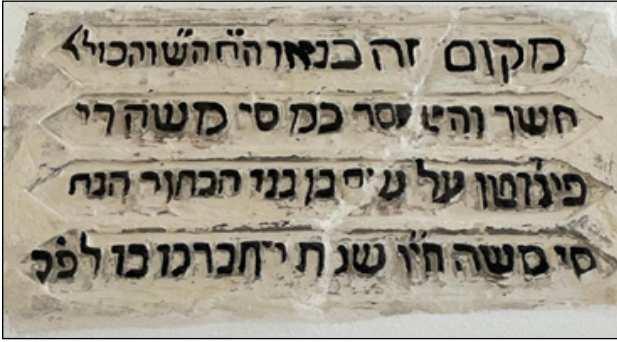 מקום זה בנאו הח׳ הש׳ והכולל
חשר והשר כמ סי משה די
פיג׳וטו על ע״ס בן בני הבחור הנח
סי משה ח״ו שנת יתברכו בו לפ״ק